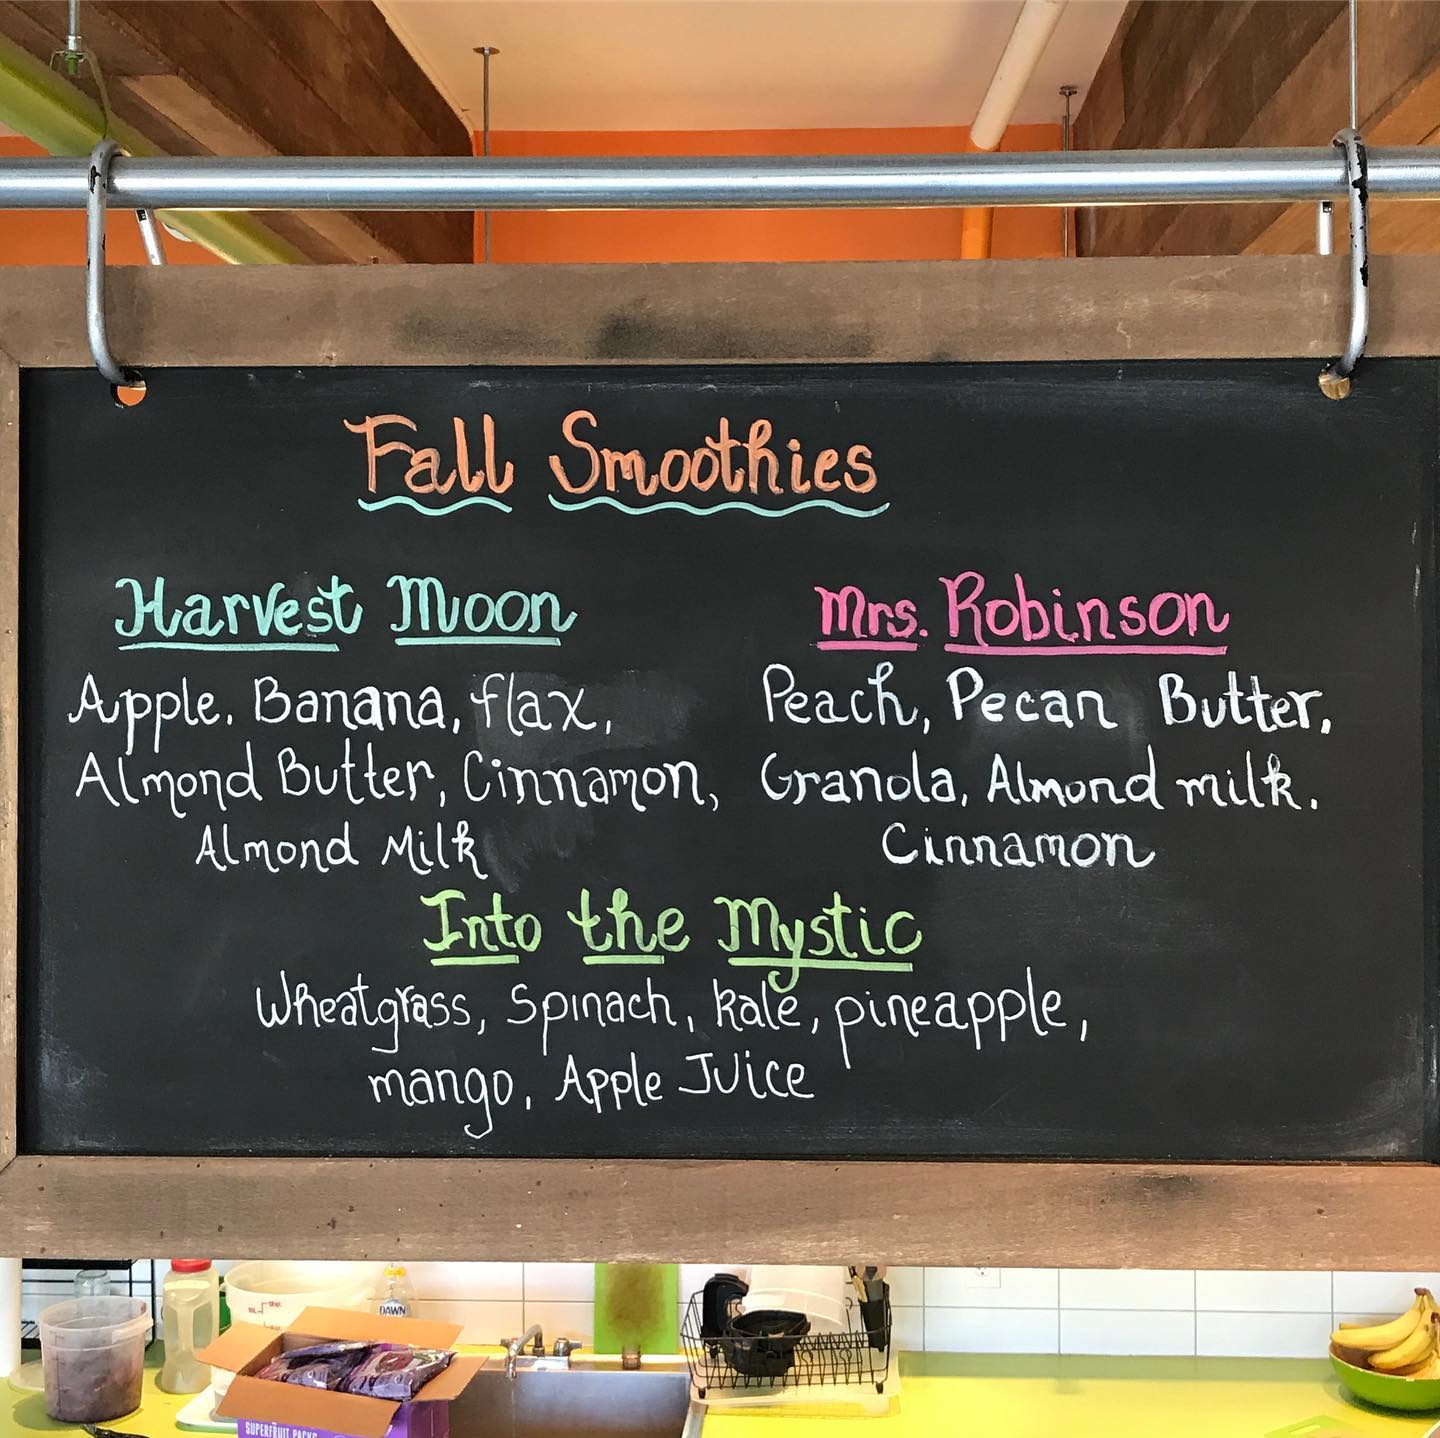 Fall Smoothies
Harvest Moon
Apple, Banana, flax,
Almond Butter, Cinnamon,
Almond Milk
Mrs. Robinson
Peach, Pecan Butter,
Granola, Almond milk,
Cinnamon
Into the Mystic
Wheatgrass, Spinach, kale, pineapple,
mango, Apple Juice
DAWN
SUPERFRUIT PACKS